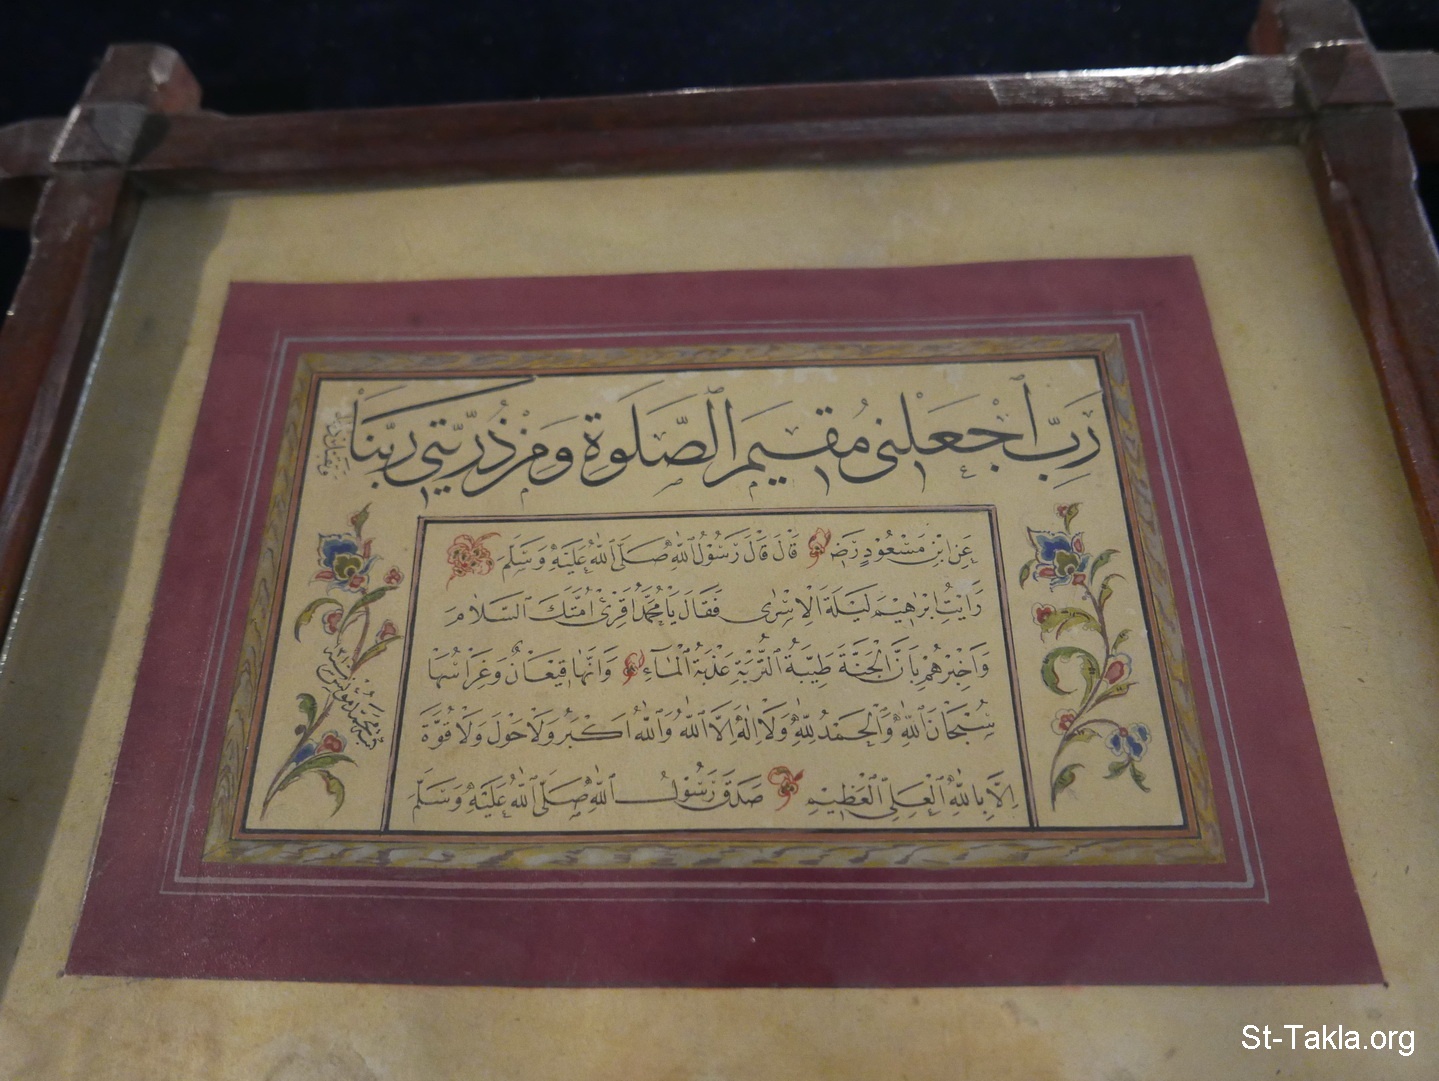 رَبِّ اجْعَلْنِي مُقِيمَ الصَّلٰوةِ وَمِنْ ذُرِّيَّتِي رَبَّنَا
وتقبل دعاء
عَنِ ابْنِ مَسْعُودٍ رَضَ قَالَ قَالَ رَسُولُ اللّٰهِ صَلَّى اللّٰهُ عَلَيْهِ وَسَلَّمَ
رَاَيْتُ اِبْرٰهِيمَ لَيْلَةَ الْاِسْرٰى فَقَالَ يَا مُحَمَّدُ اَقْرِئْ اُمَّتَكَ السَّلَامَ
وَاَخْبِرْهُمْ بِاَنَّ الْجَنَّةَ طَيِّبَةُ التُّرْبَةِ عَذْبَةُ الْمَاءِ وَاَنَّهَا قِيعَانٌ وَغِرَاسُهَا
سُبْحَانَ اللّٰهِ وَالْحَمْدُ لِلّٰهِ وَلَا اِلٰهَ اِلَّا اللّٰهُ وَاللّٰهُ اَكْبَرُ وَلَا حَوْلَ وَلَا قُوَّةَ
اِلَّا بِاللّٰهِ الْعَلِيِّ الْعَظِيمِ صَدَقَ رَسُولُ اللّٰهِ صَلَّى اللّٰهُ عَلَيْهِ وَسَلَّمَ
St-Takla.org